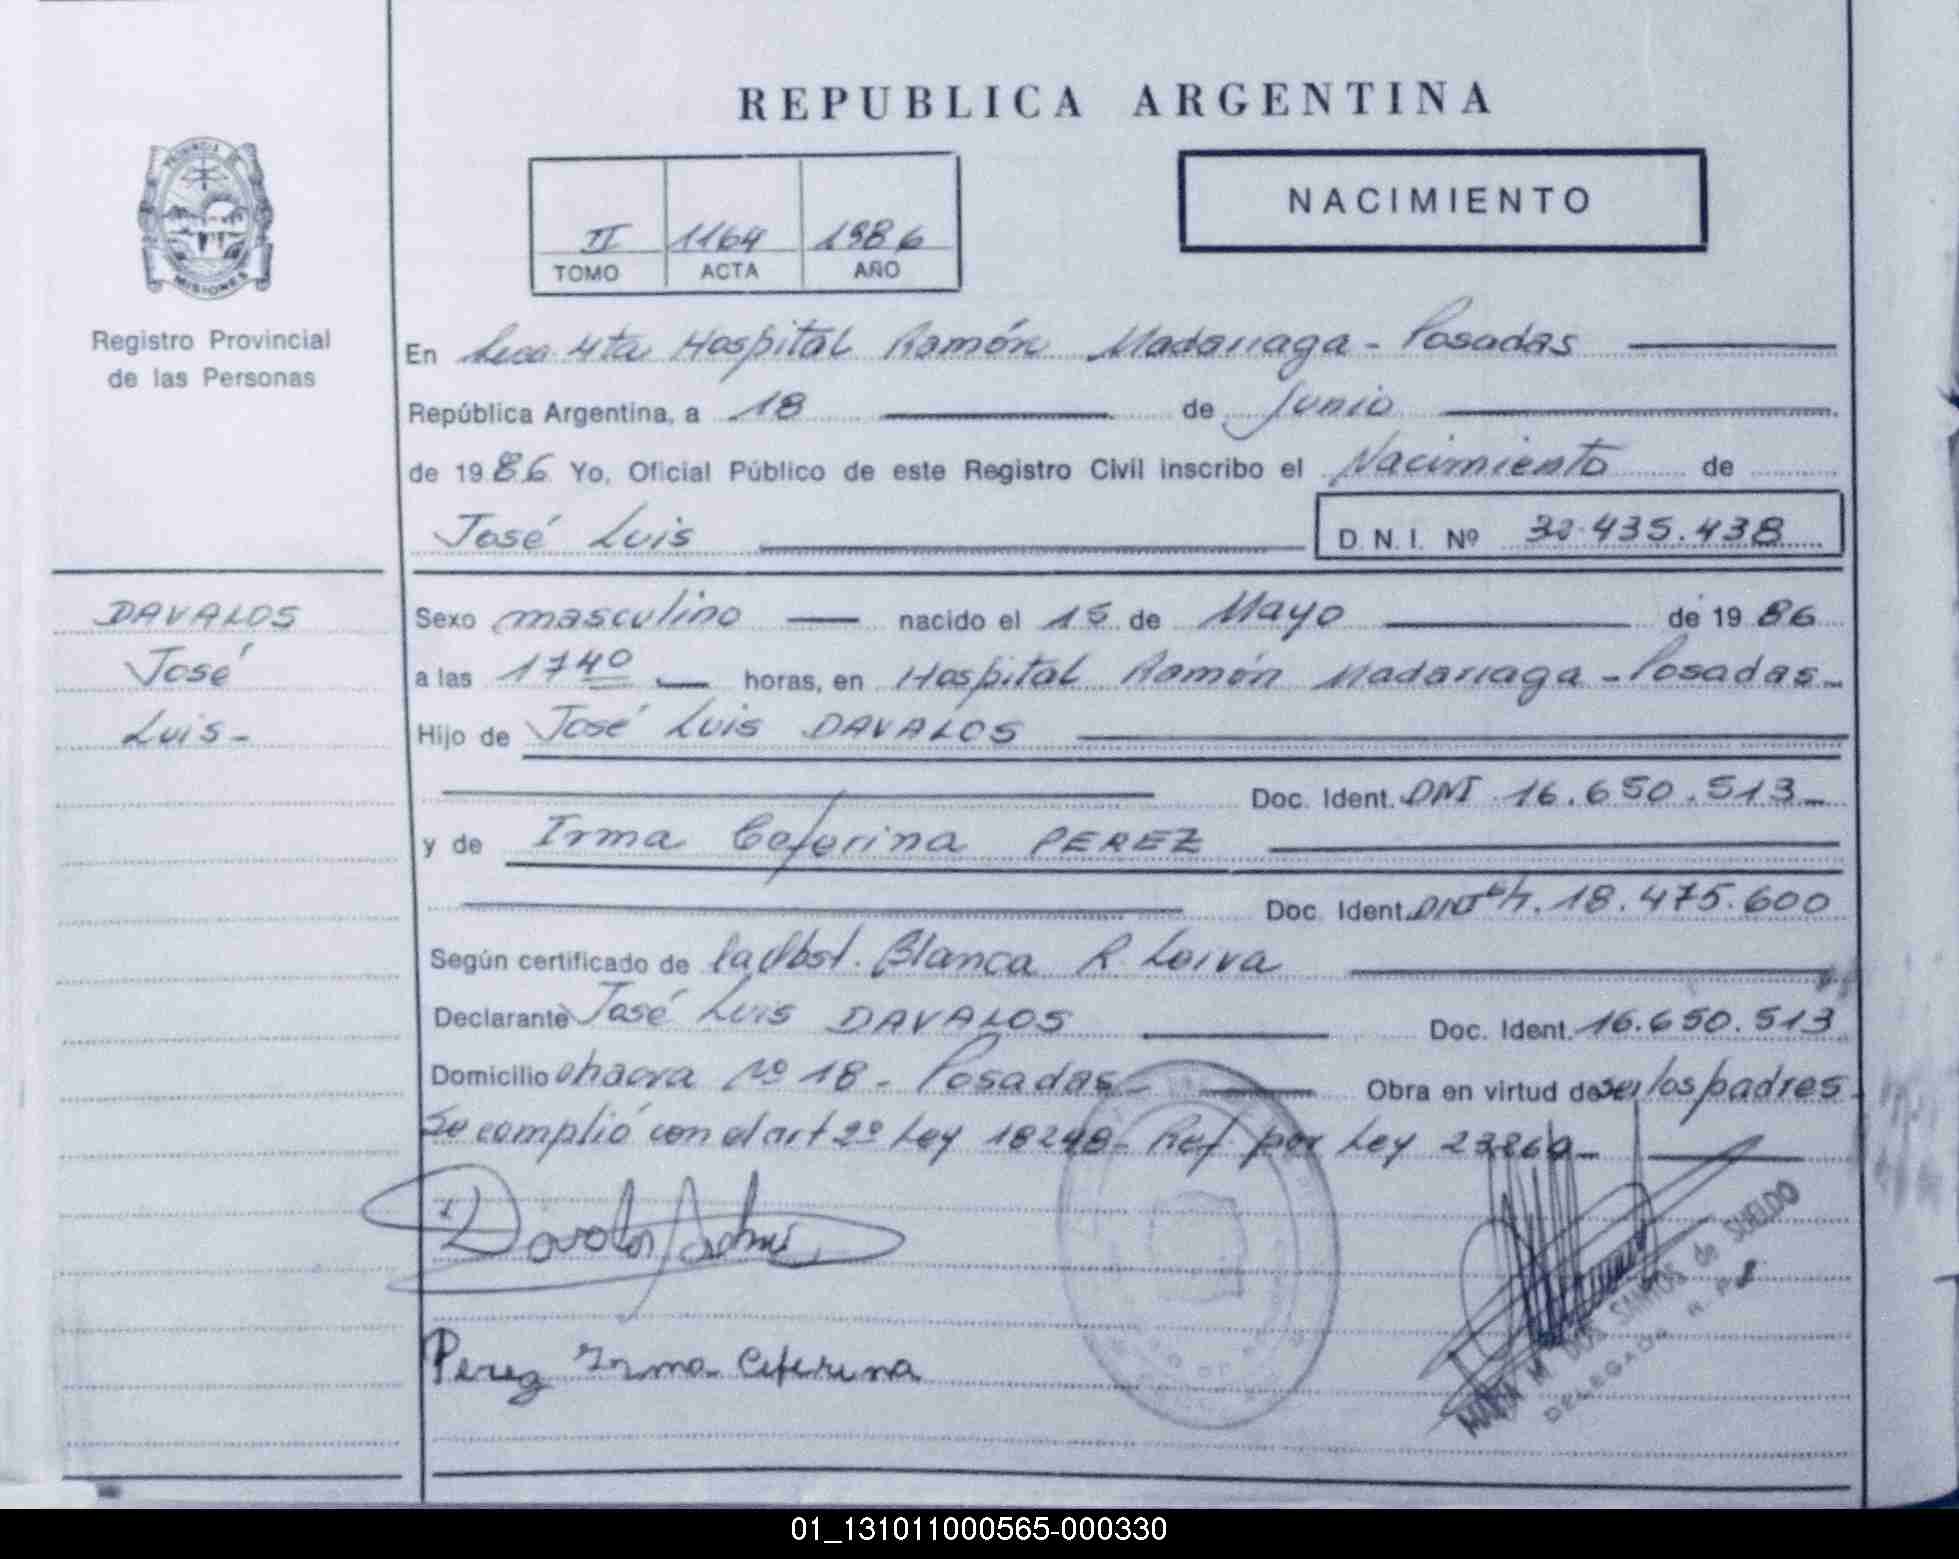 REPUBLICA ARGENTINA
PROVINCIA DE
MISIONES
Registro Provincial
de las Personas
II 1164 1986
TOMO ACTA AÑO
NACIMIENTO
En Secc 4ta Hospital Ramón Madariaga - Posadas
República Argentina, a 18 de Junio
de 1986 Yo, Oficial Público de este Registro Civil inscribo el Nacimiento de
José Luis
D. N. I. Nº 32.435.438
DAVALOS
José
Luis-
Sexo masculino nacido el 15 de Mayo de 1986
a las 1740 horas, en Hospital Ramón Madariaga - Posadas-
Hijo de José Luis DAVALOS
Doc. Ident. DNI 16.650.513-
y de Irma Ceferina PEREZ
Doc. Ident. DNI 18.475.600
Según certificado de la Obst. Blanca R. Leiva
Declarante José Luis DAVALOS Doc. Ident. 16.650.513
Domicilio chacra Nº 18 - Posadas- Obra en virtud de ser los padres
Se complió con el art 2º Ley 18248- Ref por Ley 23260-
Perez Irma Ceferina
DOS SANTOS de SHELDO
DELEGADA R. P.
01_131011000565-000330